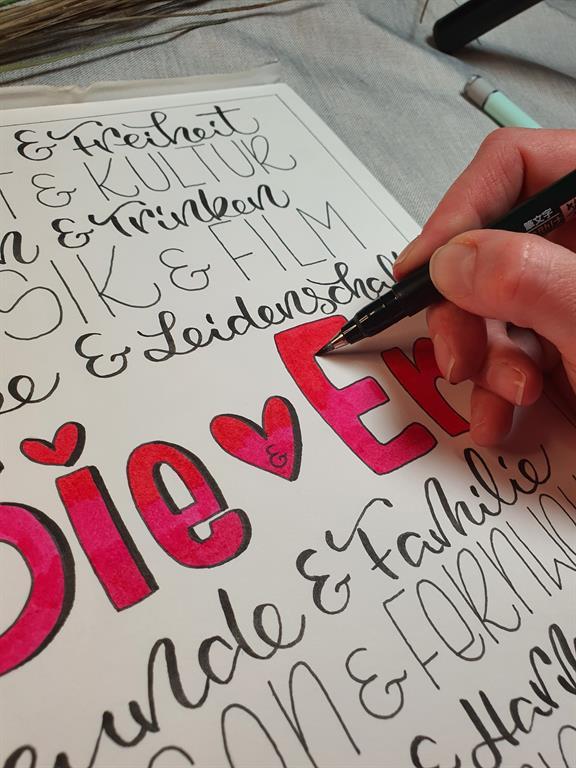 & Freiheit
T & KULTUR
n & Trinken
SIK & FILM
be & Leidenschaf
Sie & Er
unde & Familie
ON & FERNW
& Harm
筆文字